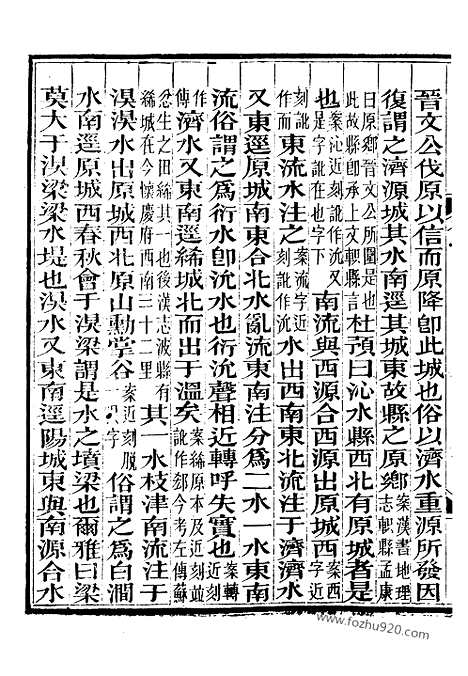 晉文公伐原以信而原降卽此城也俗以濟水重源所發因
復謂之濟源城其水南逕其城東故縣之原鄉案漢書地理志軹縣孟康
曰原鄉晉文公所圍是此故縣卽承上文軹縣言杜預曰沁水縣西北有原城者是
也案沁近刻訛作沇又是字訛在也字下南流與西源合西源出原城西案西字近
刻訛作而東流水注之案流近刻訛作沇水出西南東北流注于濟濟水
又東逕原城南東合北水亂流東南注分爲二水一水東南
流俗謂之爲衍水卽沇水也衍沇聲相近轉呼失實也案轉近刻
作傳濟水又東南逕絺城北而出于溫矣案絺原本及近刻並訛作郄今考左傳蘇
忿生之田絺其一也後漢志波縣有絺城在今懷慶府西南三十二里其一水枝津南流注于
湨湨水出原城西北原山勳掌谷案近刻脫字俗謂之爲白澗
水南逕原城西春秋會于湨梁謂是水之墳梁也爾雅曰梁
莫大于湨梁梁水堤也湨水又東南逕陽城東與南源合水
www.fozhu920.com